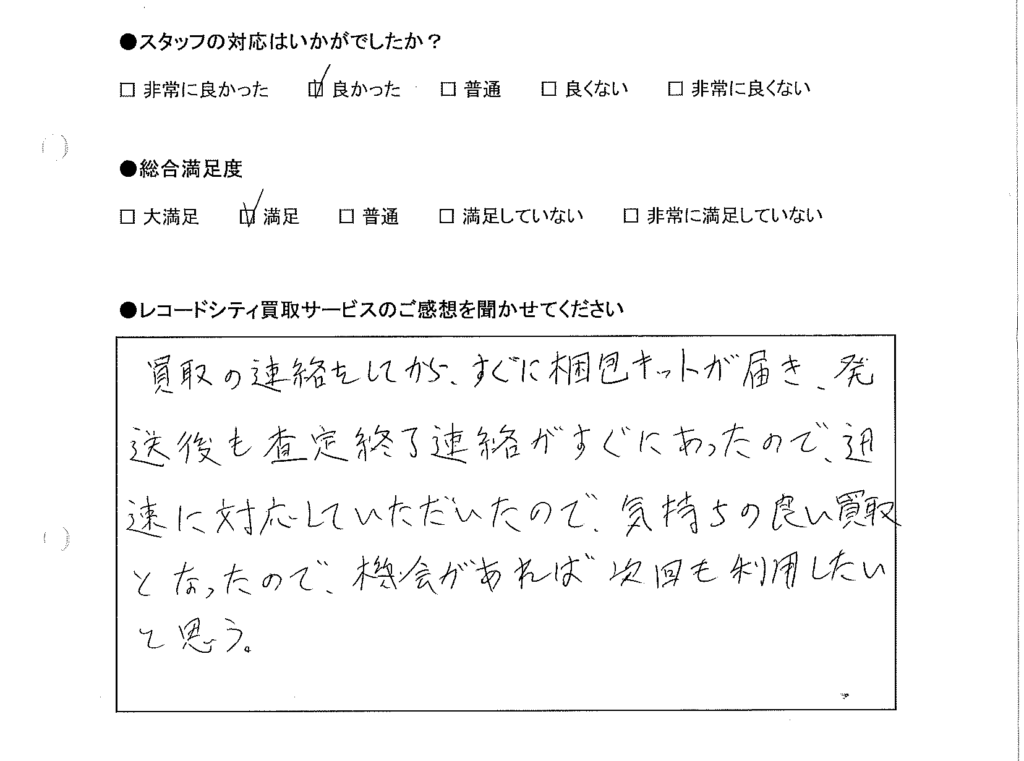 ●スタッフの対応はいかがでしたか？
□ 非常に良かった ☑ 良かった □ 普通 □ 良くない □ 非常に良くない
●総合満足度
□ 大満足 ☑ 満足 □ 普通 □ 満足していない □ 非常に満足していない
●レコードシティ買取サービスのご感想を聞かせてください
買取の連絡をしてから、すぐに梱包キットが届き、発
送後も査定終了連絡がすぐにあったので、迅
速に対応していただいたので、気持ちの良い買取
となったので、機会があれば次回も利用したい
と思う。